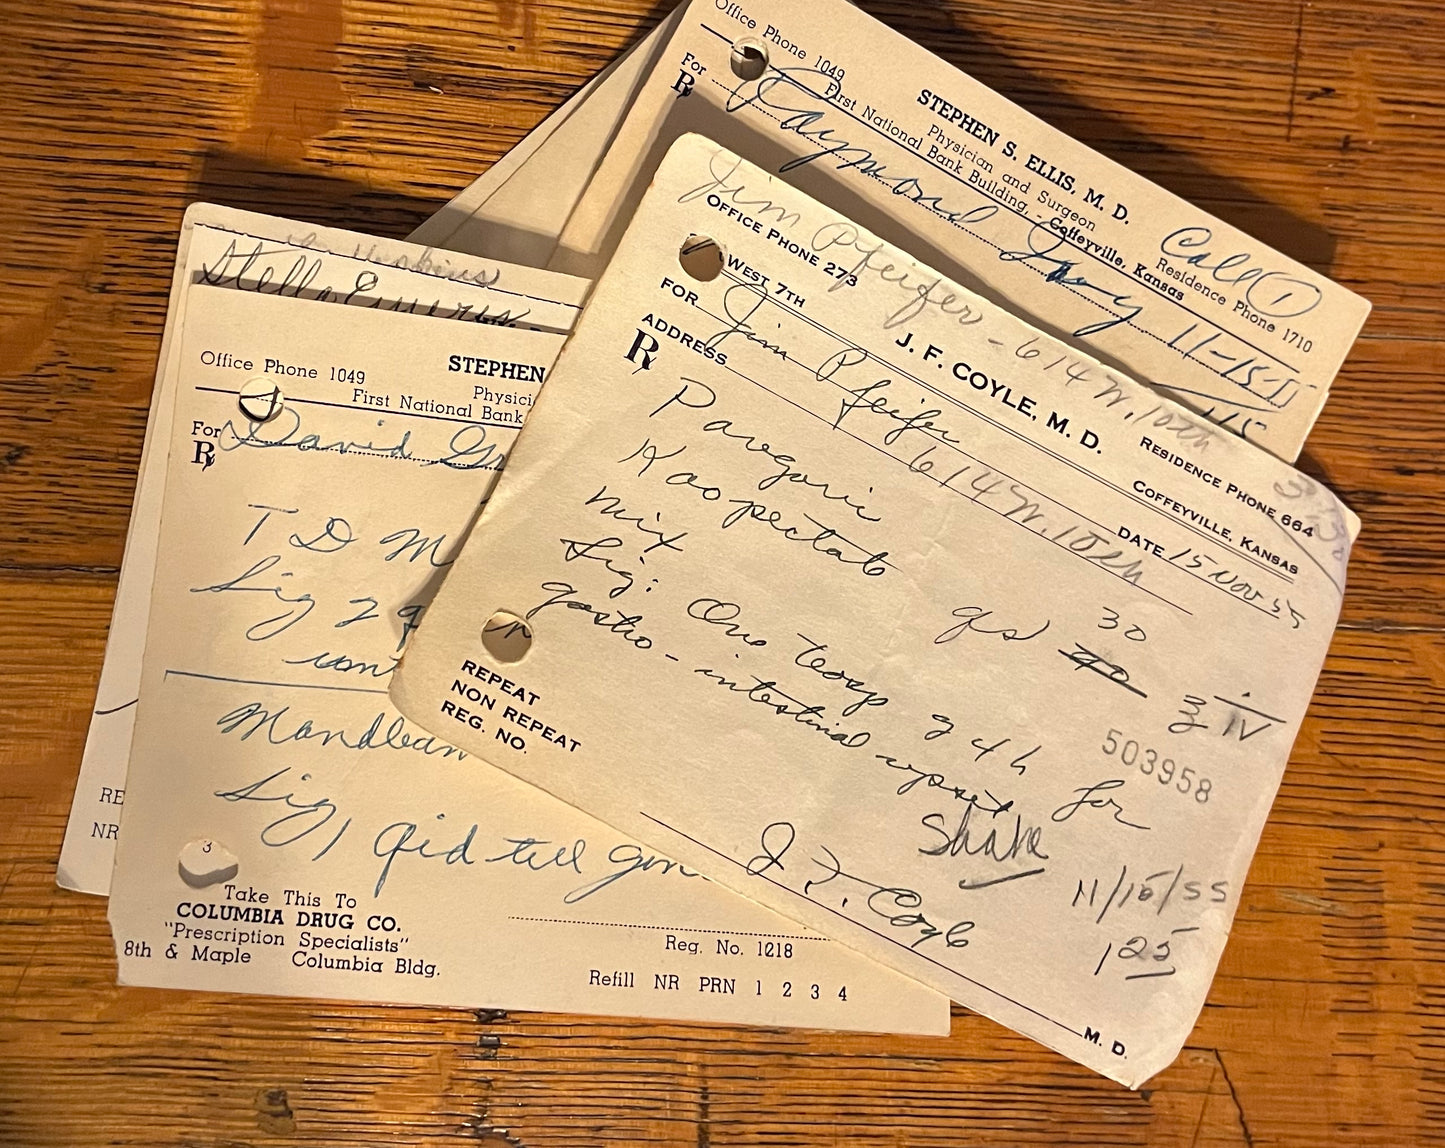 Office Phone 1049
STEPHEN S. ELLIS, M. D.
Physician and Surgeon
First National Bank Building, Coffeyville, Kansas
Residence Phone 1710
Call ①
For Raymond
℞
11-15-55
Jim Pfeifer - 614 W. 10th
OFFICE PHONE 273
WEST 7TH
J. F. COYLE, M. D.
RESIDENCE PHONE 664
COFFEYVILLE, KANSAS
FOR Jim Pfeifer
DATE 15 Nov 55
ADDRESS 614 W. 10th
℞
Paregoric
30
Kaopectate qs ℥ iv
mix
Sig: One teasp q 4 h for
gastro-intestinal upset
503958
Shake
J. F. Coyle
11/15/55
1 25
REPEAT
NON REPEAT
REG. NO.
M. D.
Stella
Office Phone 1049
STEPHEN
First National Bank
For David
℞
T D M
Sig 2 q
Sig, 1 qid till gone
3
Take This To
COLUMBIA DRUG CO.
"Prescription Specialists"
8th & Maple Columbia Bldg.
Reg. No. 1218
Refill NR PRN 1 2 3 4
RE
NR